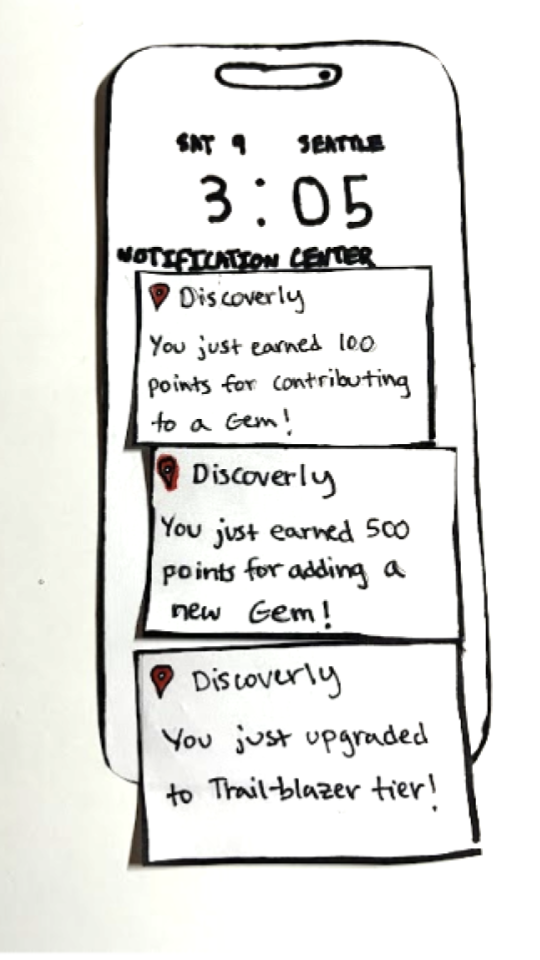 SAT 9 SEATTLE
3:05
NOTIFICATION CENTER
Discoverly
You just earned 100
points for contributing
to a Gem!
Discoverly
You just earned 500
points for adding a
new Gem!
Discoverly
You just upgraded
to Trail-blazer tier!